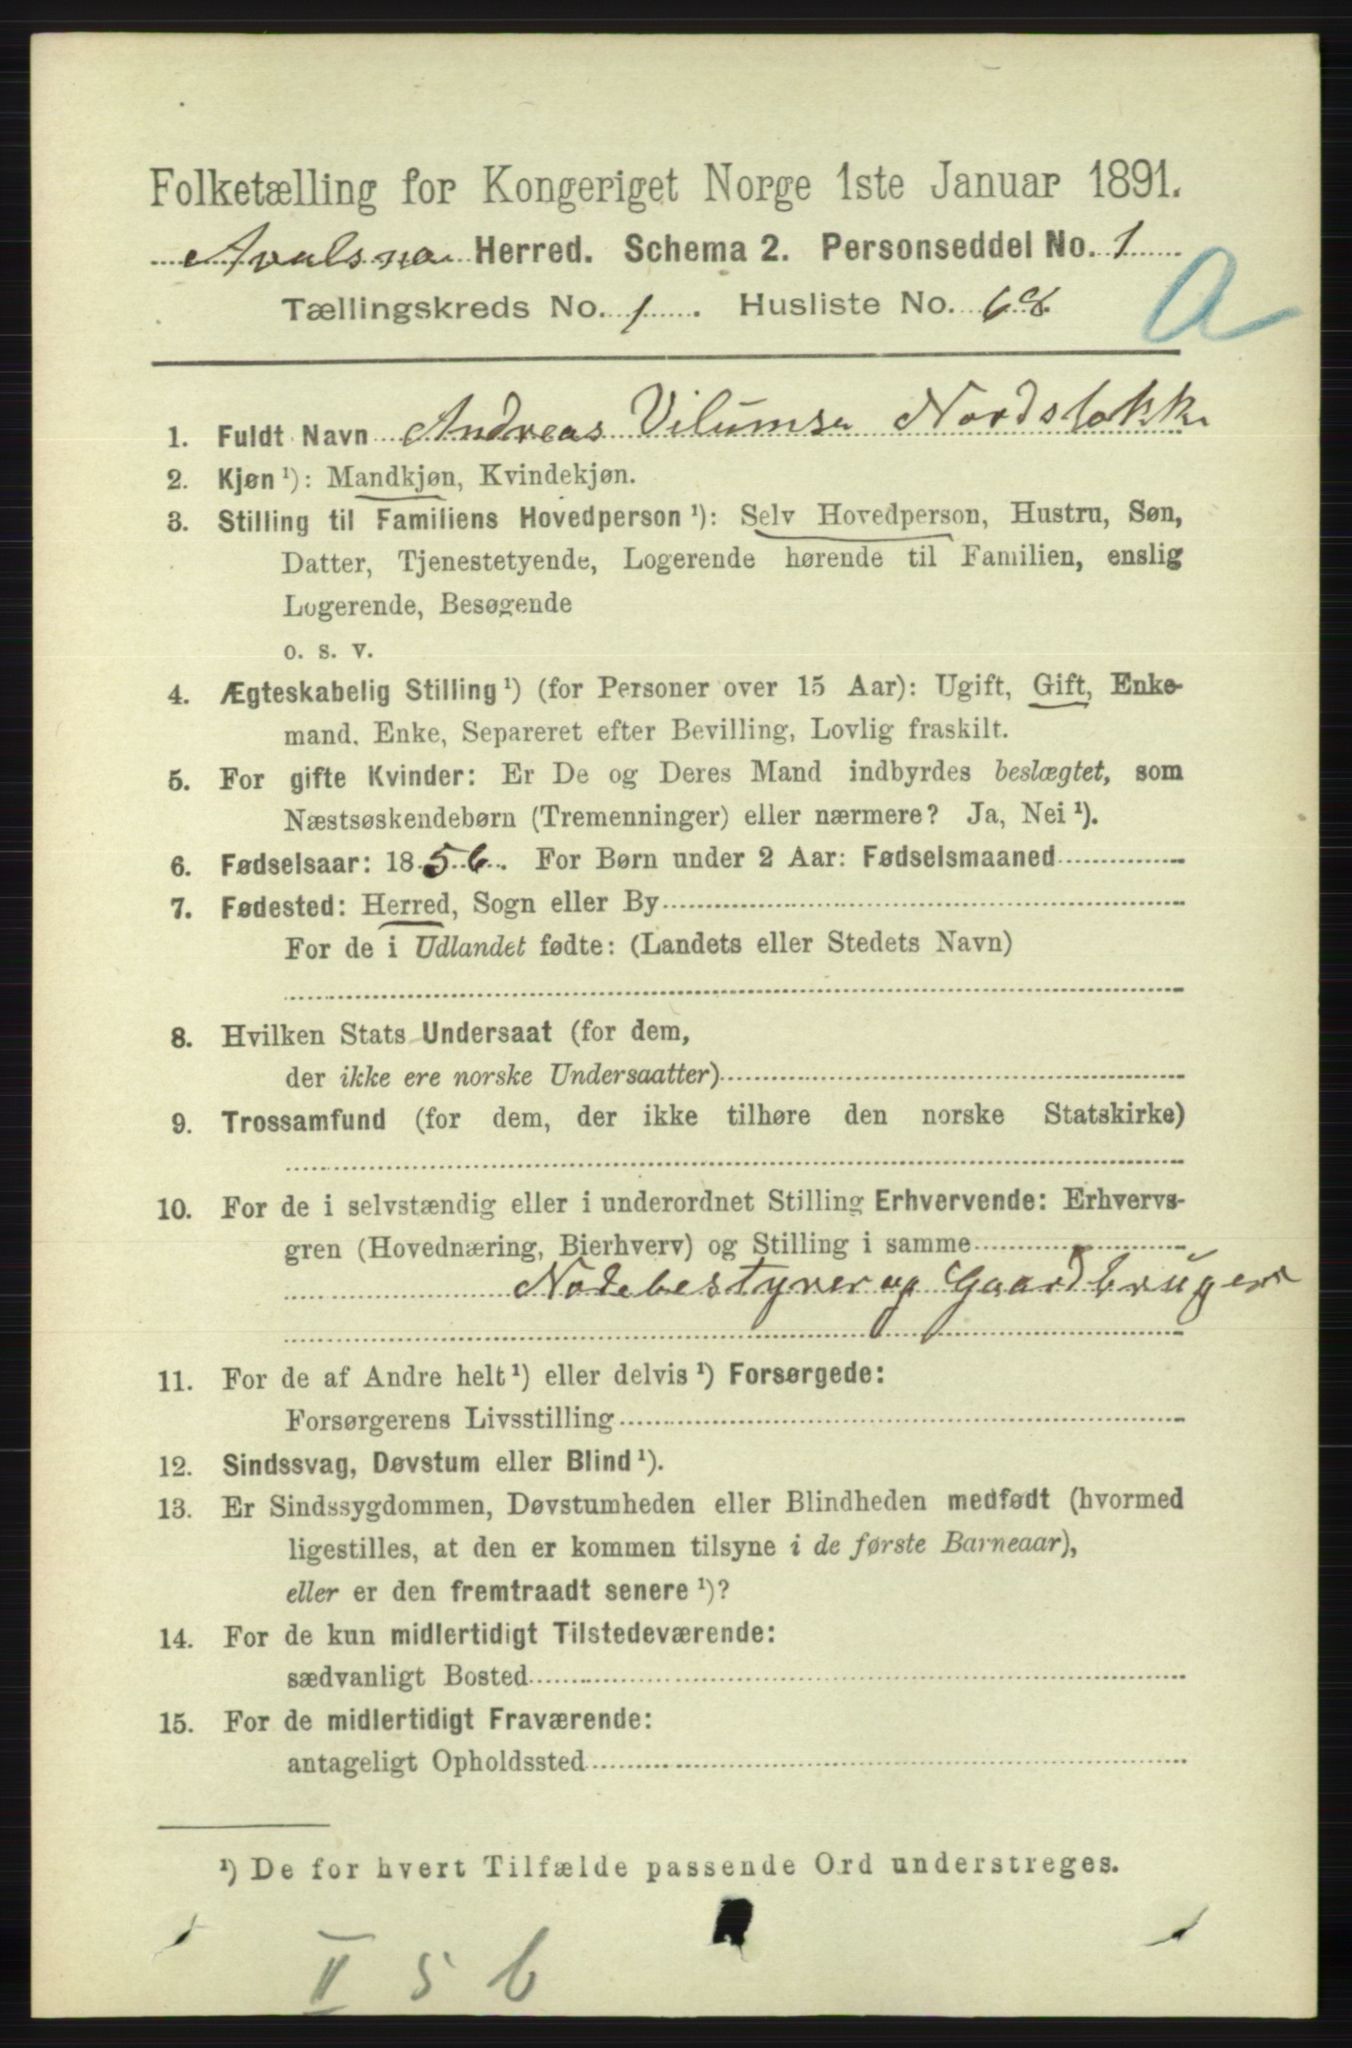 Folketælling for Kongeriget Norge 1ste Januar 1891.
Avalsna Herred. Schema 2. Personseddel No. 1
Tællingskreds No. 1. Husliste No. 68
A
1. Fuldt Navn Andreas Vilumsn Nordstokke
2. Kjøn ¹): Mandkjøn, Kvindekjøn.
3. Stilling til Familiens Hovedperson ¹): Selv Hovedperson, Hustru, Søn,
Datter, Tjenestetyende, Logerende hørende til Familien, enslig
Logerende, Besøgende
o. s. v.
4. Ægteskabelig Stilling ¹) (for Personer over 15 Aar): Ugift, Gift, Enke-
mand, Enke, Separeret efter Bevilling, Lovlig fraskilt.
5. For gifte Kvinder: Er De og Deres Mand indbyrdes beslægtet, som
Næstsøskendebørn (Tremenninger) eller nærmere? Ja, Nei ¹).
6. Fødselsaar: 1856. For Børn under 2 Aar: Fødselsmaaned
7. Fødested: Herred, Sogn eller By
For de i Udlandet fødte: (Landets eller Stedets Navn)
8. Hvilken Stats Undersaat (for dem,
der ikke ere norske Undersaatter)
9. Trossamfund (for dem, der ikke tilhøre den norske Statskirke)
10. For de i selvstændig eller i underordnet Stilling Erhvervende: Erhvervs-
gren (Hovednæring, Bierhverv) og Stilling i samme
Nodebestyrer og Gaardbruger
11. For de af Andre helt ¹) eller delvis ¹) Forsørgede:
Forsørgerens Livsstilling
12. Sindssvag, Døvstum eller Blind ¹).
13. Er Sindssygdommen, Døvstumheden eller Blindheden medfødt (hvormed
ligestilles, at den er kommen tilsyne i de første Barneaar),
eller er den fremtraadt senere ¹)?
14. For de kun midlertidigt Tilstedeværende:
sædvanligt Bosted
15. For de midlertidigt Fraværende:
antageligt Opholdssted
¹) De for hvert Tilfælde passende Ord understreges.
II 5 b